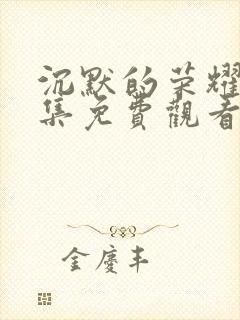 沉默的荣耀
集免費觀看
金慶丰